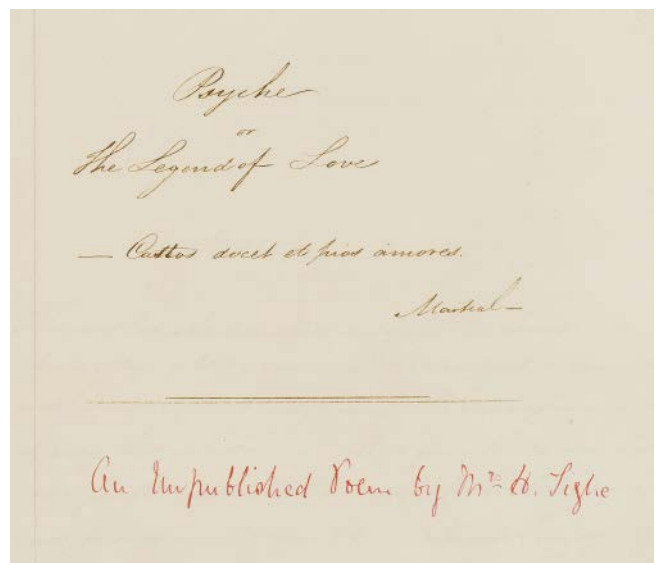 Psyche
or
The Legend of Love
— Castos docet et pios amores.
Martial —
An Unpublished Poem by Mrs H. Tighe